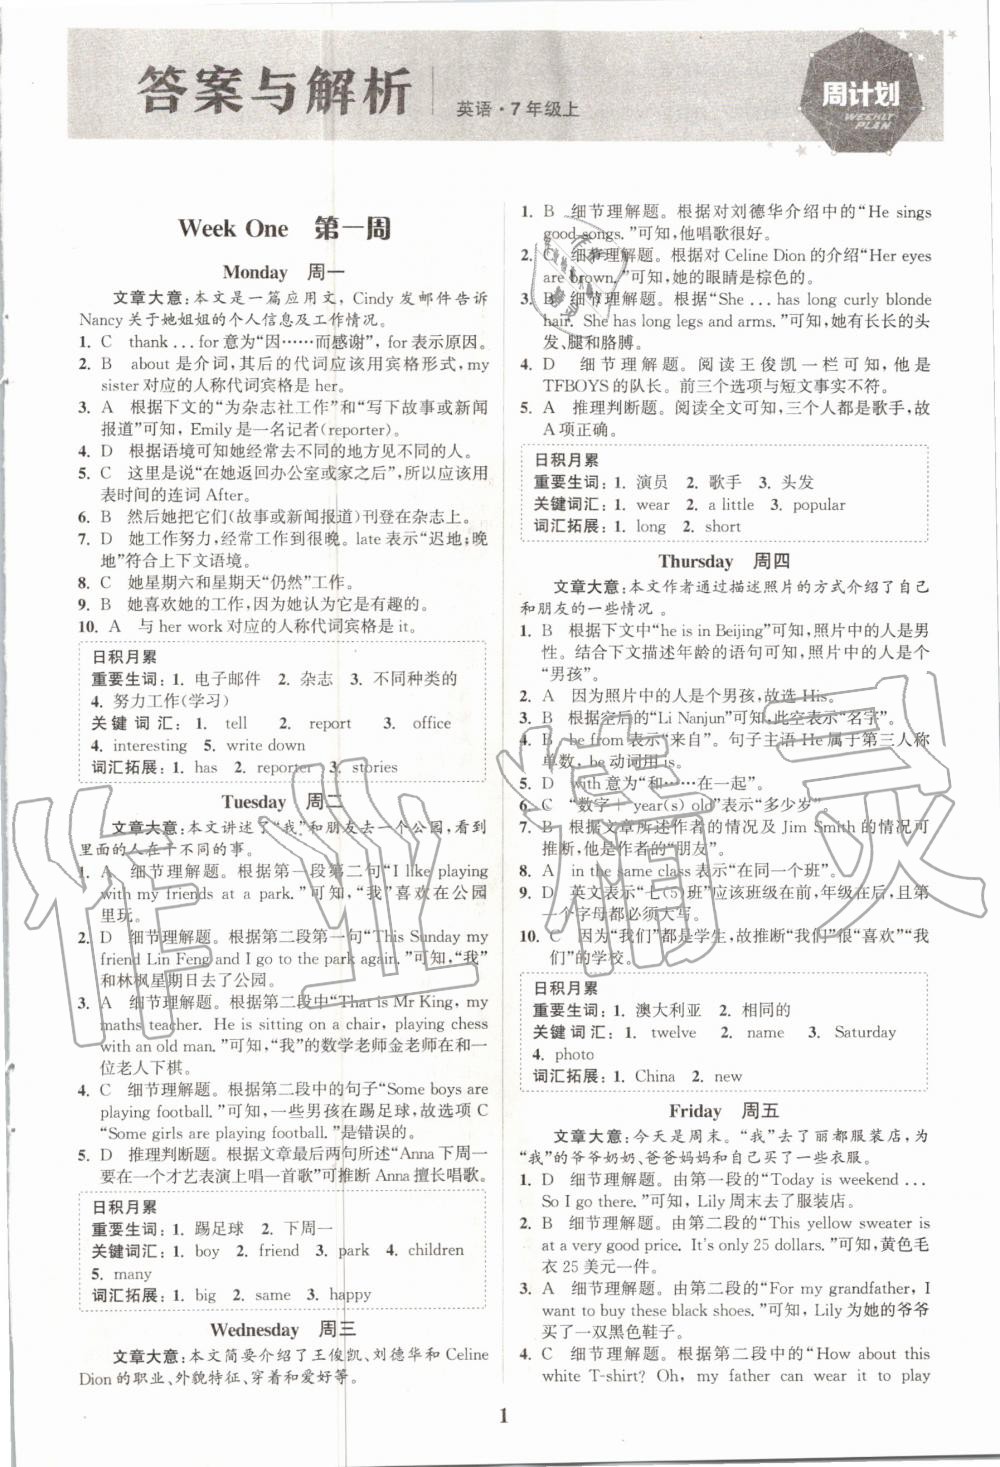 答案与解析
英语·7年级上
周计划
WEEKLY
PLAN
Week One 第一周
Monday 周一
文章大意:本文是一篇应用文,Cindy发邮件告诉
Nancy关于她姐姐的个人信息及工作情况。
1. C thank...for意为“因……而感谢”,for表示原因。
2. B about是介词,其后的代词应该用宾格形式,my
sister对应的人称代词宾格是her。
3. A 根据下文的“为杂志社工作”和“写下故事或新闻
报道”可知,Emily是一名记者(reporter)。
4. D 根据语境可知她经常去不同的地方见不同的人。
5. C 这里是说“在她返回办公室或家之后”,所以应该用
表时间的连词After。
6. B 然后她把它们(故事或新闻报道)刊登在杂志上。
7. D 她工作努力,经常工作到很晚。late表示“迟地;晚
地”符合上下文语境。
8. C 她星期六和星期天“仍然”工作。
9. B 她喜欢她的工作,因为她认为它是有趣的。
10. A 与her work对应的人称代词宾格是it。
日积月累
重要生词:1. 电子邮件 2. 杂志 3. 不同种类的
4. 努力工作(学习)
关键词汇:1. tell 2. report 3. office
4. interesting 5. write down
词汇拓展:1. has 2. reporter 3. stories
Tuesday 周二
文章大意:本文讲述了“我”和朋友去一个公园,看到
里面的人在干不同的事。
1. A 细节理解题。根据第一段第二句“I like playing
with my friends at a park.”可知,“我”喜欢在公园
里玩。
2. D 细节理解题。根据第二段第一句“This Sunday my
friend Lin Feng and I go to the park again.”可知,“我”
和林枫星期日去了公园。
3. A 细节理解题。根据第二段中“That is Mr King, my
maths teacher. He is sitting on a chair, playing chess
with an old man.”可知,“我”的数学老师金老师在和一
位老人下棋。
4. C 细节理解题。根据第二段中的句子“Some boys are
playing football.”可知,一些男孩在踢足球,故选项C
“Some girls are playing football.”是错误的。
5. D 推理判断题。根据文章最后两句所述“Anna下周一
要在一个才艺表演上唱一首歌”可推断Anna擅长唱歌。
日积月累
重要生词:1. 踢足球 2. 下周一
关键词汇:1. boy 2. friend 3. park 4. children
5. many
词汇拓展:1. big 2. same 3. happy
Wednesday 周三
文章大意:本文简要介绍了王俊凯、刘德华和Celine
Dion的职业、外貌特征、穿着和爱好等。
1. B 细节理解题。根据对刘德华介绍中的“He sings
good songs.”可知,他唱歌很好。
2. C 细节理解题。根据对Celine Dion的介绍“Her eyes
are brown.”可知,她的眼睛是棕色的。
3. B 细节理解题。根据“She...has long curly blonde
hair. She has long legs and arms.”可知,她有长长的头
发、腿和胳膊。
4. D 细节理解题。阅读王俊凯一栏可知,他是
TFBOYS的队长。前三个选项与短文事实不符。
5. A 推理判断题。阅读全文可知,三个人都是歌手,故
A项正确。
日积月累
重要生词:1. 演员 2. 歌手 3. 头发
关键词汇:1. wear 2. a little 3. popular
词汇拓展:1. long 2. short
Thursday 周四
文章大意:本文作者通过描述照片的方式介绍了自己
和朋友的一些情况。
1. B 根据下文中“he is in Beijing”可知,照片中的人是男
性。结合下文描述年龄的语句可知,照片中的人是个
“男孩”。
2. A 因为照片中的人是个男孩,故选His。
3. B 根据空后的“Li Nanjun”可知,此空表示“名字”。
4. B be from表示“来自”。句子主语He属于第三人称
单数,be动词用is。
5. D with意为“和……在一起”。
6. C “数字+year(s) old”表示“多少岁”。
7. B 根据文章所述作者的情况及Jim Smith的情况可
推断,他是作者的“朋友”。
8. A in the same class表示“在同一个班”。
9. D 英文表示“七(5)班”应该班级在前,年级在后,且第
一个字母都必须大写。
10. C 因为“我们”都是学生,故推断“我们”很“喜欢”“我
们”的学校。
日积月累
重要生词:1. 澳大利亚 2. 相同的
关键词汇:1. twelve 2. name 3. Saturday
4. photo
词汇拓展:1. China 2. new
Friday 周五
文章大意:今天是周末。“我”去了丽都服装店,为
“我”的爷爷奶奶、爸爸妈妈和自己买一些衣服。
1. D 细节理解题。由第一段的“Today is weekend...
So I go there.”可知,Lily周末去了服装店。
2. B 细节理解题。由第二段的“This yellow sweater is
at a very good price. It's only 25 dollars.”可知,黄色毛
衣25美元一件。
3. A 细节理解题。由第二段的“For my grandfather, I
want to buy these black shoes.”可知,Lily为她的爷爷
买了一双黑色鞋子。
4. C 细节理解题。根据第二段中的“How about this
white T-shirt? Oh, my father can wear it to play
1
作业精灵